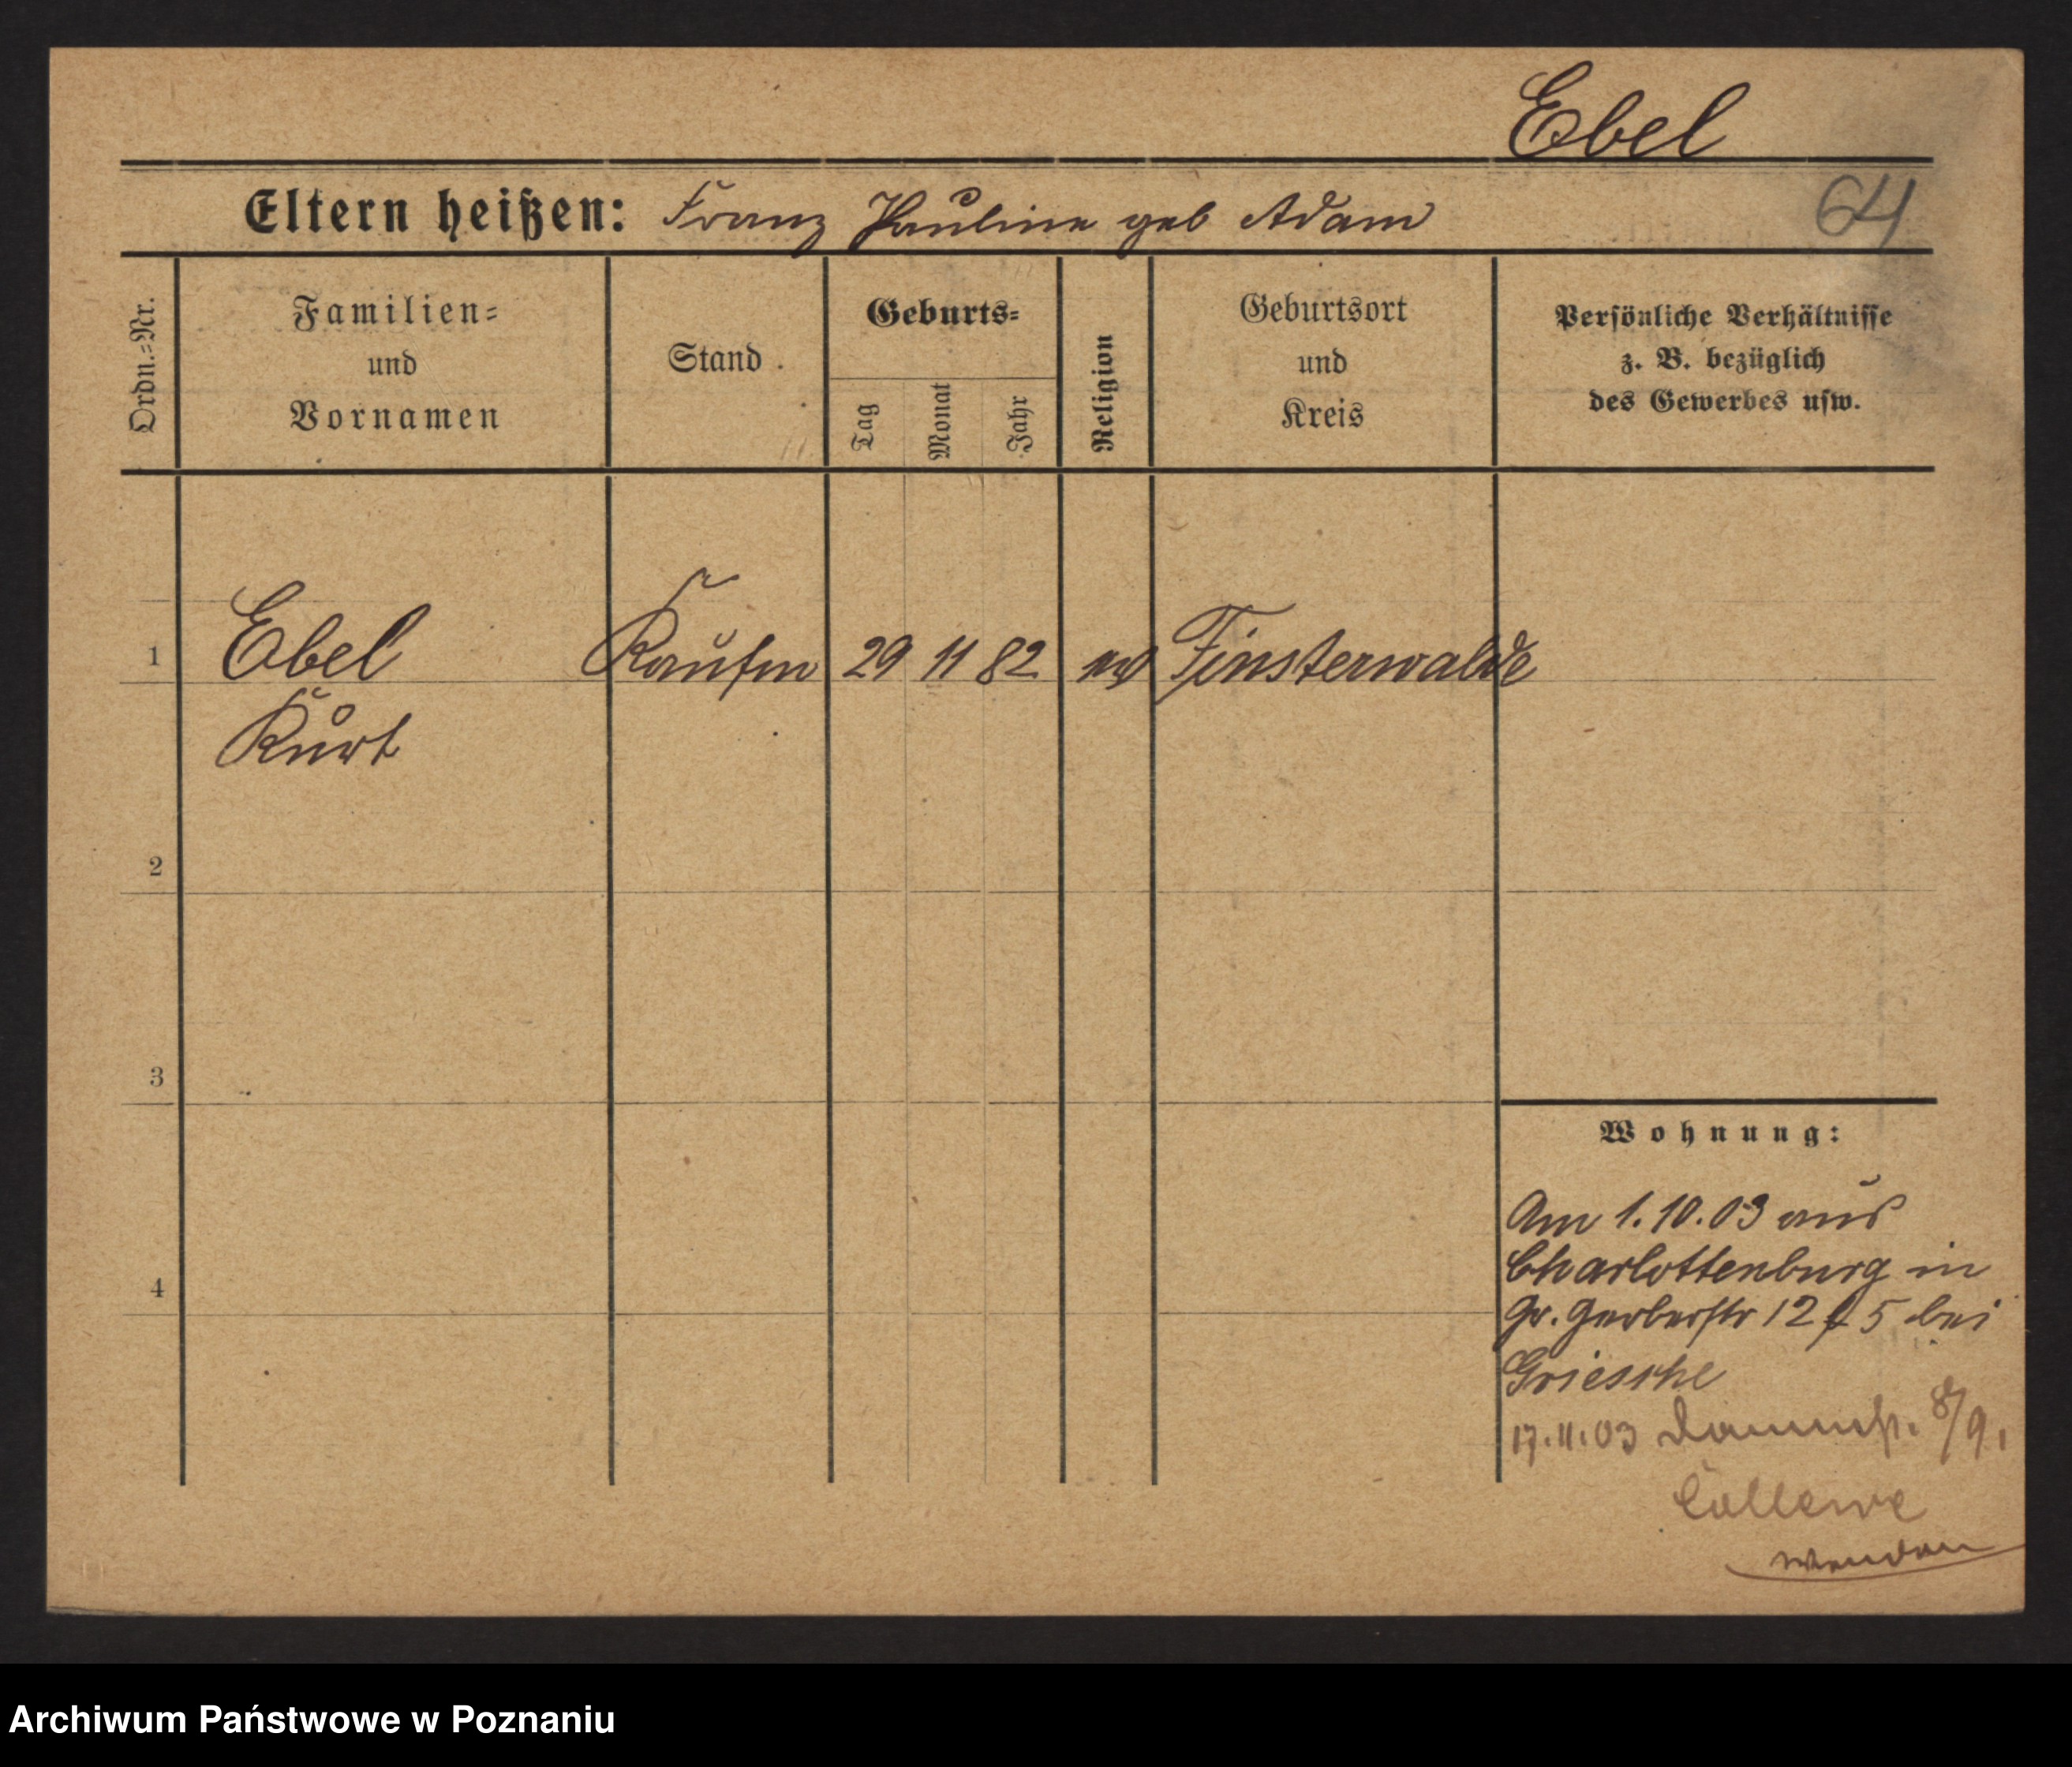 Ebel
Eltern heißen: Franz Pauline geb Adam
64
Ordn.=Nr.
Familien=
und
Vornamen
Stand.
Geburts=
Tag
Monat
Jahr
Religion
Geburtsort
und
Kreis
Persönliche Verhältnisse
z. B. bezüglich
des Gewerbes usw.
1
Ebel
Kaufm
29
11
82
Finsterwalde
Kurt
2
3
4
Wohnung:
Am 1.10.03 aus
Charlottenburg in
Gr. Gerberstr 12 5 bei
Griesche
17.11.03 8/9.
wenden
Archiwum Państwowe w Poznaniu